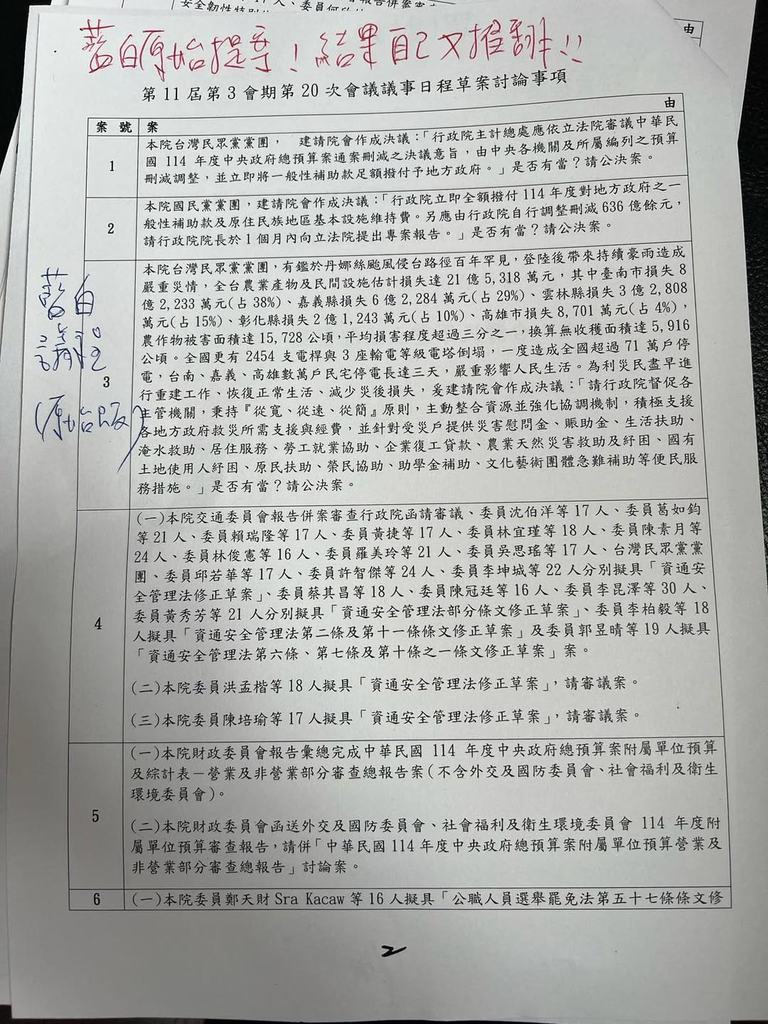 藍白原始提案!結果自己又推翻!!
第11屆第3會期第20次會議議事日程草案討論事項
由
案 號 案 由
1
本院台灣民眾黨黨團, 建請院會作成決議:「行政院主計總處應依立法院審議中華民
國 114 年度中央政府總預算案通案刪減之決議意旨,由中央各機關及所屬編列之預算
刪減調整,並立即將一般性補助款足額撥付予地方政府。」是否有當?請公決案。
2
本院國民黨黨團,建請院會作成決議:「行政院立即全額撥付114年度對地方政府之一
般性補助款及原住民族地區基本設施維持費。另應由行政院自行調整刪減636億餘元,
請行政院院長於1個月內向立法院提出專案報告。」是否有當?請公決案。
藍白
議程
(原始版)
3
本院台灣民眾黨黨團,有鑑於丹娜絲颱風侵台路徑百年罕見,登陸後帶來持續豪雨造成
嚴重災情,全台農業產物及民間設施估計損失達 21 億 5,318 萬元,其中臺南市損失 8
億 2,233 萬元(占 38%)、嘉義縣損失 6 億 2,284 萬元(占 29%)、雲林縣損失 3 億 2,808
萬元(占15%)、彰化縣損失2億1,243萬元(占10%)、高雄市損失8,701萬元(占4%),
農作物被害面積達 15,728 公頃,平均損害程度超過三分之一,換算無收穫面積達 5,916
公頃。全國更有 2454 支電桿與 3 座輸電等級電塔倒塌,一度造成全國超過 71 萬戶停
電,台南、嘉義、高雄數萬戶民宅停電長達三天,嚴重影響人民生活。為利災民盡早進
行重建工作、恢復正常生活、減少災後損失,爰建請院會作成決議:「請行政院督促各
主管機關,秉持『從寬、從速、從簡』原則,主動整合資源並強化協調機制,積極支援
各地方政府救災所需支援與經費,並針對受災戶提供災害慰問金、賑助金、生活扶助、
淹水救助、居住服務、勞工就業協助、企業復工貸款、農業天然災害救助及紓困、國有
土地使用人紓困、原民扶助、榮民協助、助學金補助、文化藝術團體急難補助等便民服
務措施。」是否有當?請公決案。
4
(一)本院交通委員會報告併案審查行政院函請審議、委員沈伯洋等17人、委員葛如鈞
等21人、委員賴瑞隆等17人、委員黃捷等17人、委員林宜瑾等18人、委員陳素月等
24人、委員林俊憲等16人、委員羅美玲等21人、委員吳思瑤等17人、台灣民眾黨黨
團、委員邱若華等17人、委員許智傑等24人、委員李坤城等22人分別擬具「資通安
全管理法修正草案」、委員蔡其昌等18人、委員陳冠廷等16人、委員李昆澤等30人、
委員黃秀芳等21人分別擬具「資通安全管理法部分條文修正草案」、委員李柏毅等18
人擬具「資通安全管理法第二條及第十一條條文修正草案」及委員郭昱晴等19人擬具
「資通安全管理法第六條、第七條及第十條之一條文修正草案」案。
(二)本院委員洪孟楷等18人擬具「資通安全管理法修正草案」,請審議案。
(三)本院委員陳培瑜等17人擬具「資通安全管理法修正草案」,請審議案。
5
(一)本院財政委員會報告彙總完成中華民國 114 年度中央政府總預算案附屬單位預算
及綜計表－營業及非營業部分審查總報告案(不含外交及國防委員會、社會福利及衛生
環境委員會)。
(二)本院財政委員會函送外交及國防委員會、社會福利及衛生環境委員會 114 年度附
屬單位預算審查報告,請併「中華民國114年度中央政府總預算案附屬單位預算營業及
非營業部分審查總報告」討論案。
6
(一)本院委員鄭天財 Sra Kacaw 等 16 人擬具「公職人員選舉罷免法第五十七條條文修
2